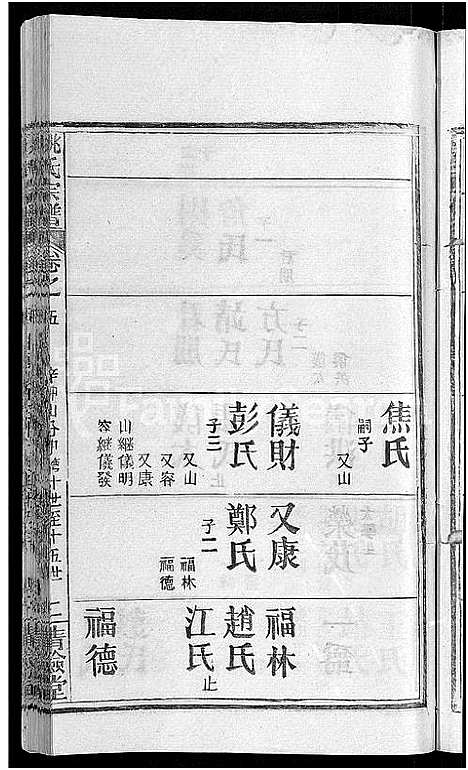 焦氏
嗣子
又山
儀財
彭氏
子三
又山
又容
又康
山繼儀明
容繼儀發
又康
鄭氏
子二
福林
福德
福林
趙氏
江氏止
福德
氏宗譜
卷之五
世至十五世
二
堂